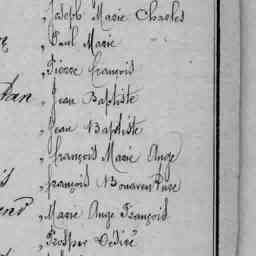 , Joseph Marie Charles
, Paul Marie
, Pierre françois
, Jean Baptiste
, Jean Baptiste
, françois Marie Ange
, françois Bonaventure
, Marie Ange François
, Prosper Dédiré